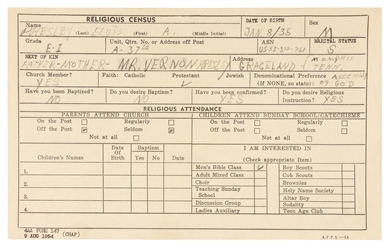 RELIGIOUS CENSUS
DATE OF BIRTH
Sex
Name PRESLEY (Last) ELVIS (First) A. (Middle Initial)
JAN 8/35
M
Grade
Unit, Qtr. No. or Address off Post
ASN
MARITAL STATUS
E-1
A-37
S
NEXT OF KIN
Address
FATHER-MOTHER- MR. VERNON PRESLEY
GRACELAND MEMPHIS TENN.
Church Member? Catholic Protestant Jewish
Denominational Preference
(IF NONE, so state)
YES
ASSEMBLY OF GOD
Have you been Baptized?
Have you been Confirmed?
Desire Religious
Instruction?
NO
NO
YES
RELIGIOUS ATTENDANCE
PARENTS ATTEND CHURCH
CHILDREN ATTEND SUNDAY SCHOOL/CATECHISM
On the Post Regularly
On the Post Regularly
Off the Post Seldom
Off the Post Seldom
Not at all
Not at all
Children's Names
Date Of Birth
Baptism
Yes No
I AM INTERESTED IN
(Check appropriate Item)
1.
Men's Bible Class
Boy Scouts
Adult Mixed Class
Cub Scouts
2.
Choir
Brownies
Teaching Sunday School
Holy Name Society
3.
Altar Boy
Discussion Group
Sodality
4.
Ladies Auxiliary
Teen Age Club
4AA FORM 147
9 AUG 1954 (CHAP)